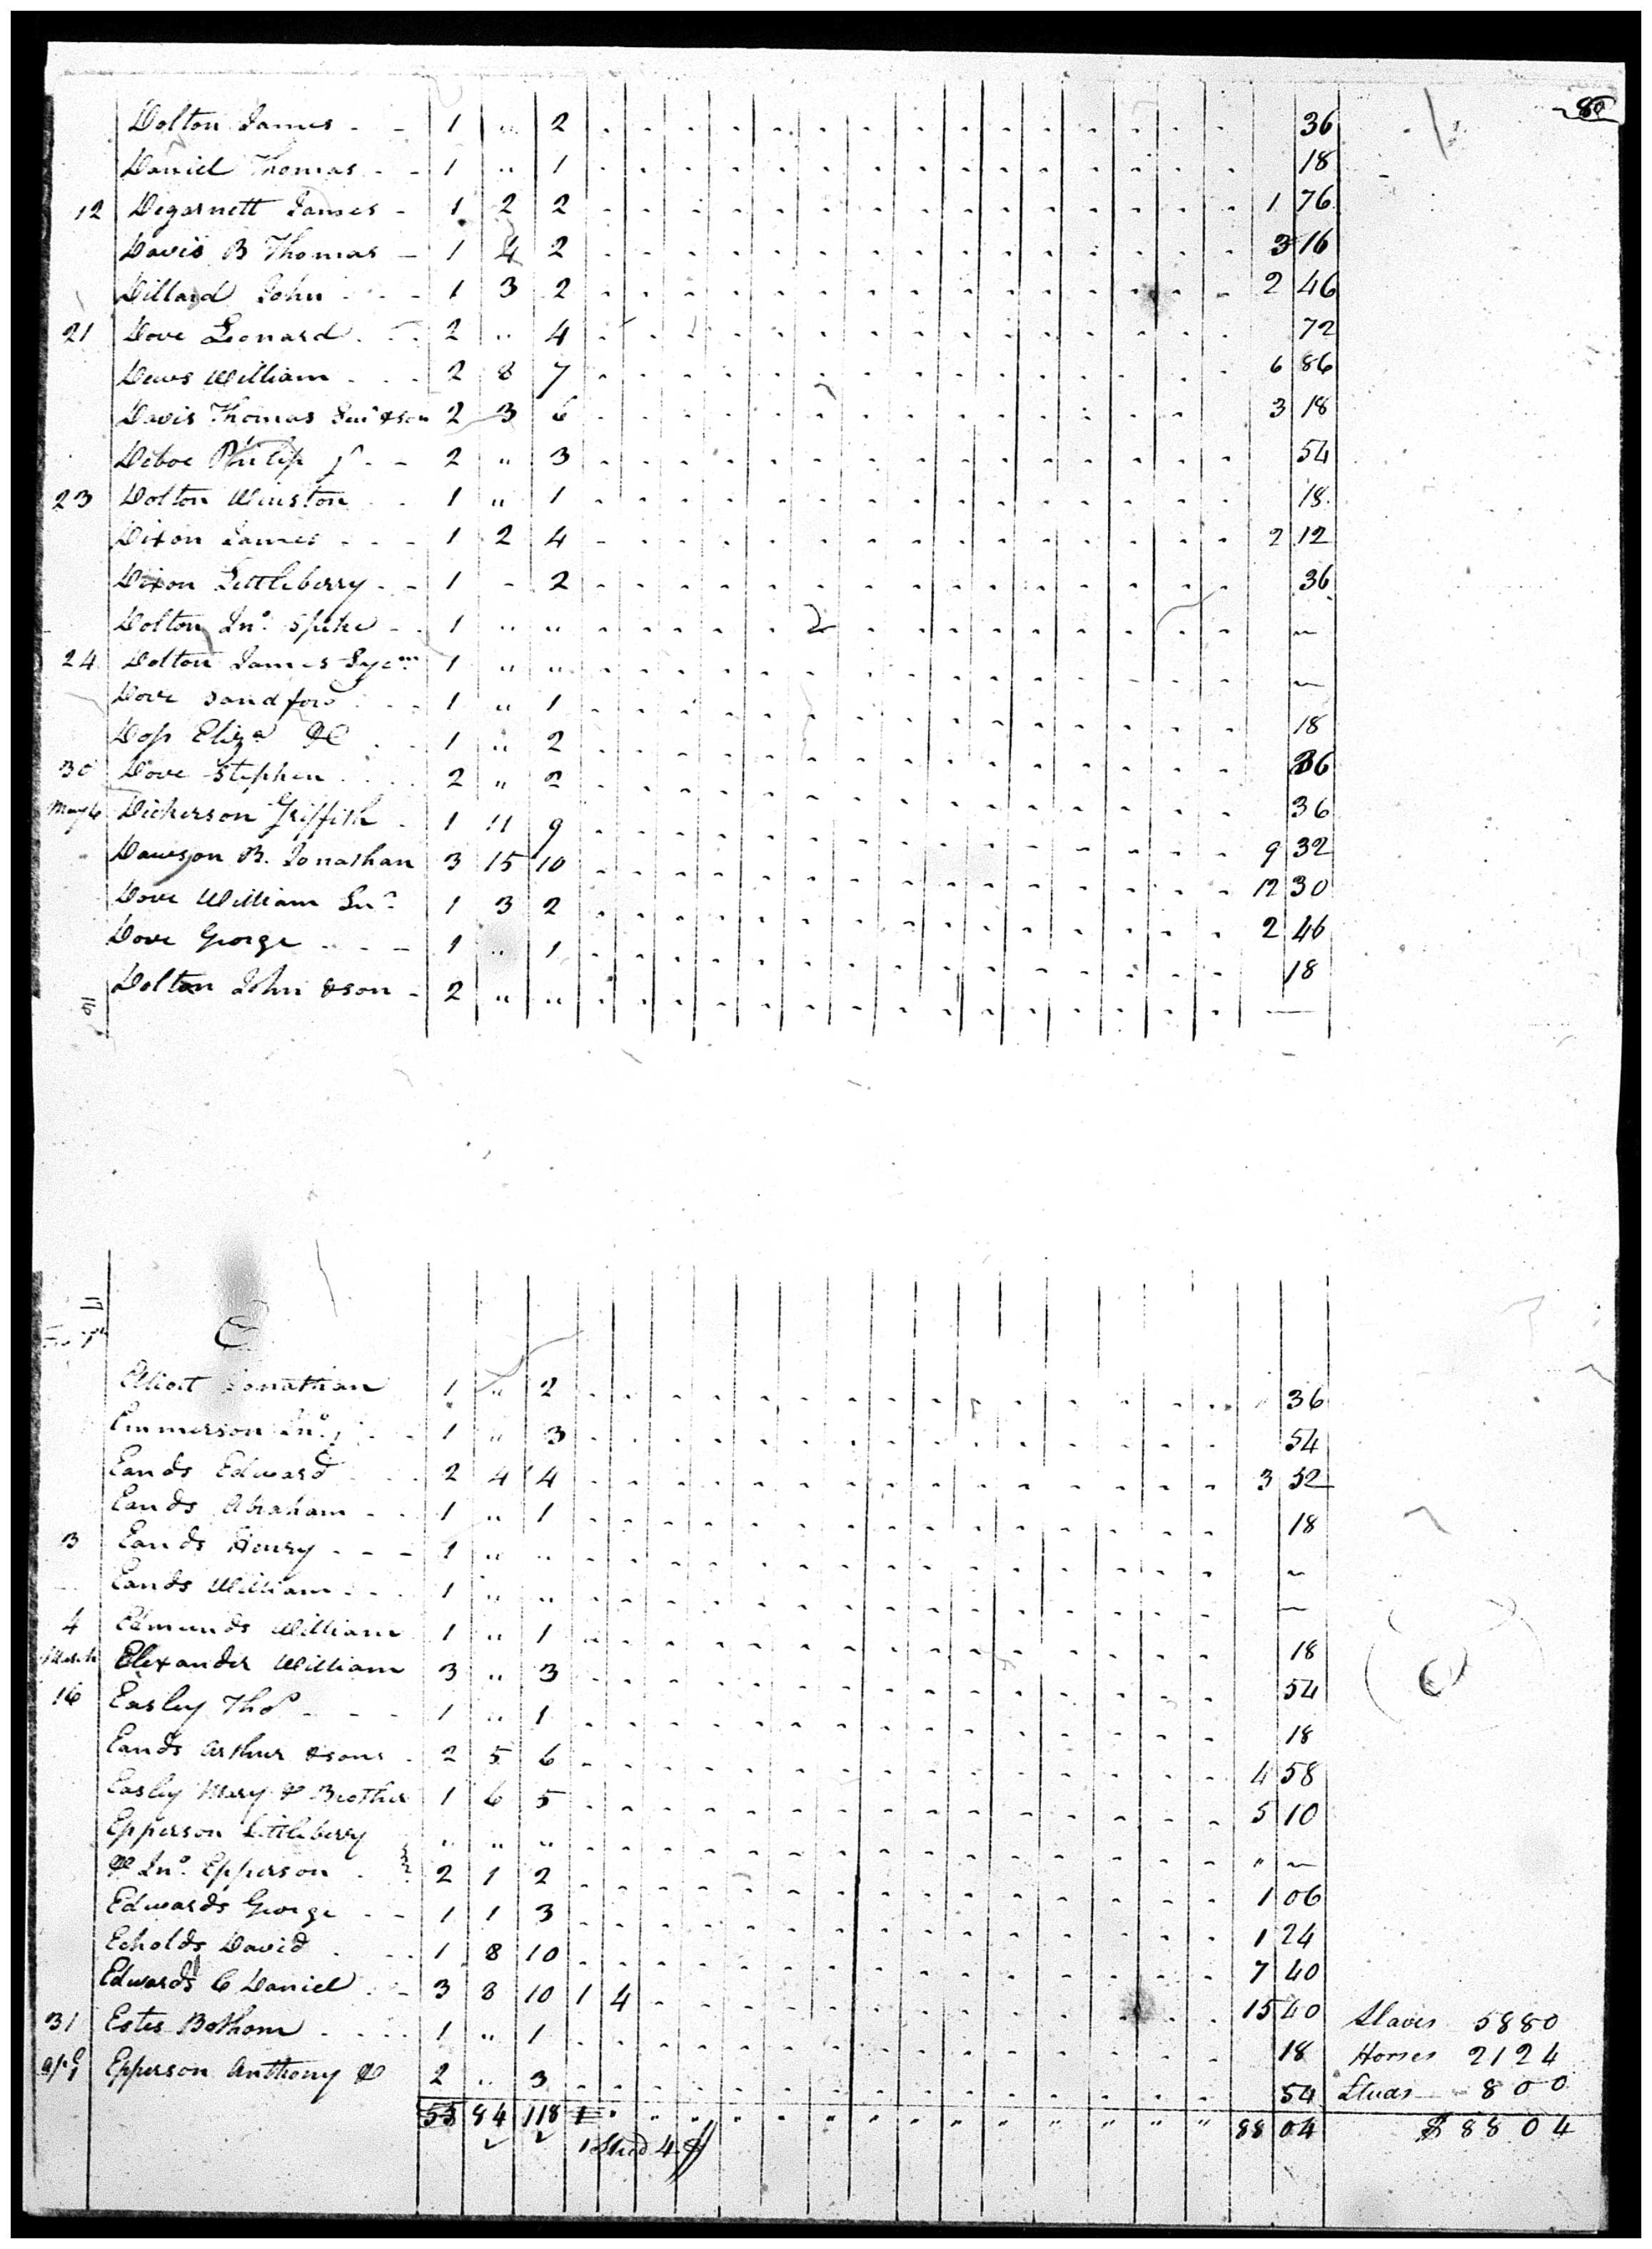 80
Dolton James - - 1 .. 2 36
Daniel Thomas - - 1 .. 1 18
12 Degarnett James - 1 2 2 1 76
Davis B Thomas - 1 4 2 3 16
Dillard John - - - 1 3 2 2 46
21 Dove Leonard . - . 2 .. 4 72
Dews William - - . 2 8 7 6 86
Davis Thomas & son 2 3 6 3 18
Deboe Philip - - 2 " 3 54
23 Dolton Winston - . 1 " 1 18
Dixon James - - - 1 2 4 2 12
Dixon Littleberry - - 1 - 2 36
Dolton Jno. Spike - . 1 .. .. 2 ~
24 Dolton James 1 .. .. ~
Dove Sandford - - 1 .. 1 18
Eliza 1 .. 2 36
30 Dove Stephen . . . 2 " 2 36
May 6 Dickerson Griffith . 1 11 9 9 32
Dawson B. Jonathan 3 15 10 12 30
Dove William 1 3 2 2 46
Dove George .. - - 1 .. 1 18
Dolton John & son - 2 .. .. —
E
Elliott Jonathan 1 .. 2 36
Emmerson Jno. - - 1 .. 3 54
Eands Edward . . . 2 4 4 3 52
Eands Abraham - - 1 .. 1 18
3 Eands Henry - - - 1 .. .. ~
Eands William - - . 1 .. .. —
4 Edmunds William 1 .. 1 18
March Elexander William 3 .. 3 54
16 Easley Thos - - - 1 .. 1 18
Eands Arthur & sons . 2 5 6 4 58
Easley Mary & Brother 1 6 5 5 10
Epperson Littleberry .. .. .. " ~
& Jno. Epperson . 2 1 2 1 06
Edwards George - - 1 1 3 1 24
Echolds David . - . 1 8 10 7 40
Edwards C Daniel . - 3 8 10 1 4 15 40 Slaves 5880
31 Estes Bothom . . . . 1 .. 1 18 Horses 2124
Apl 1 Epperson Anthony & 2 .. 3 54 Studs 800
53 84 118 1 88 04 $ 8804
1 Stud 4 $